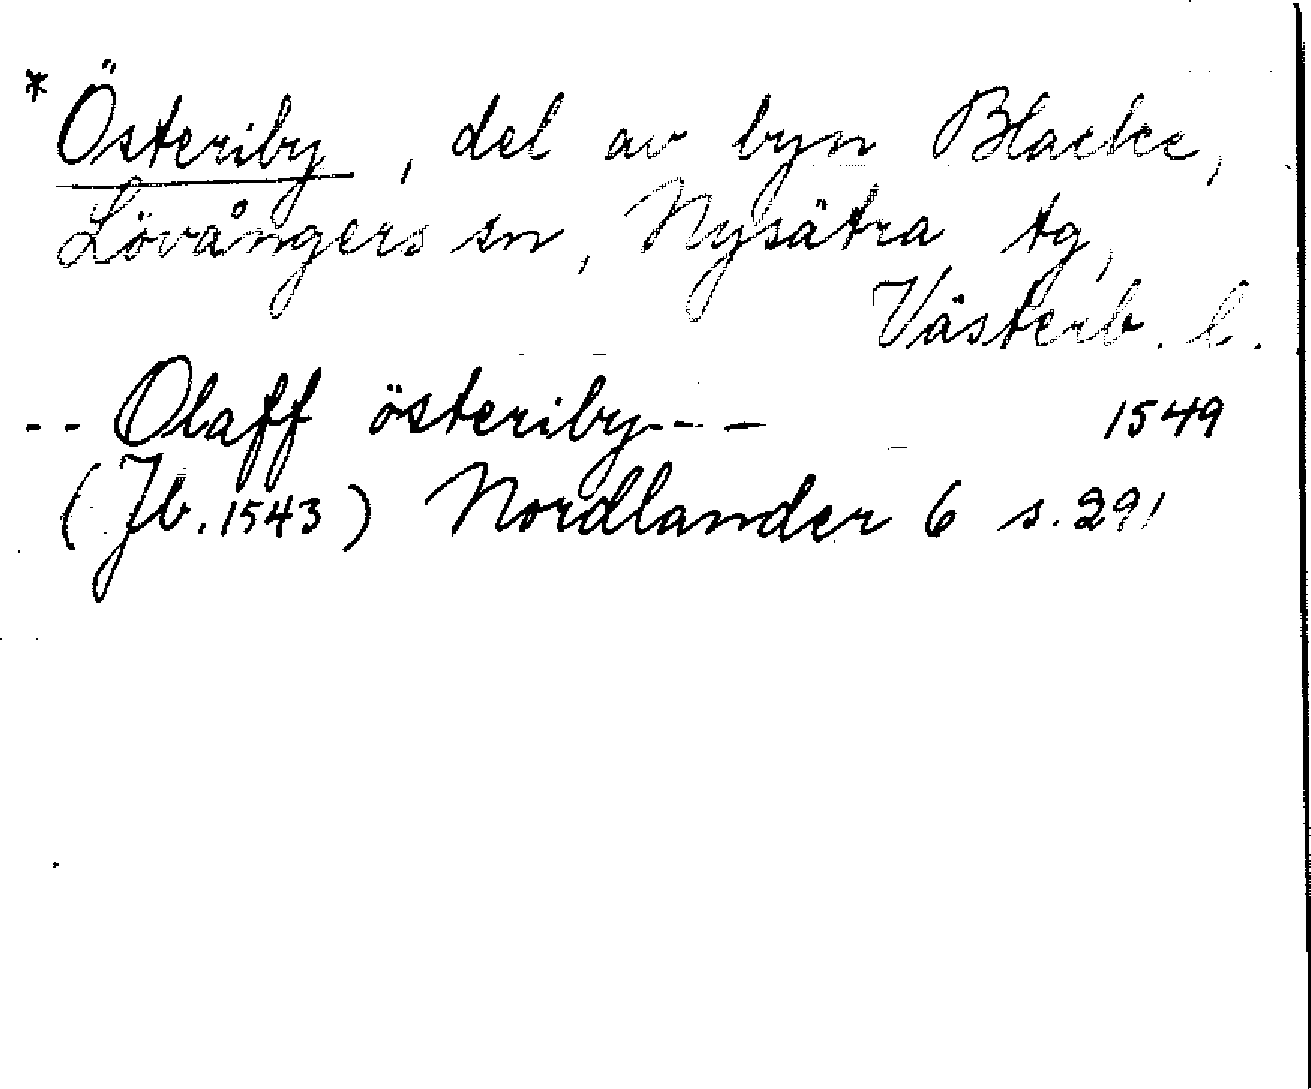 *Österiby, del av byn Blacke,
Lövångers sn, Nysätra tg,
Västerb. l.
-- Olaff österiby --- 1549
(Jb. 1543) Nordlander 6 s. 291